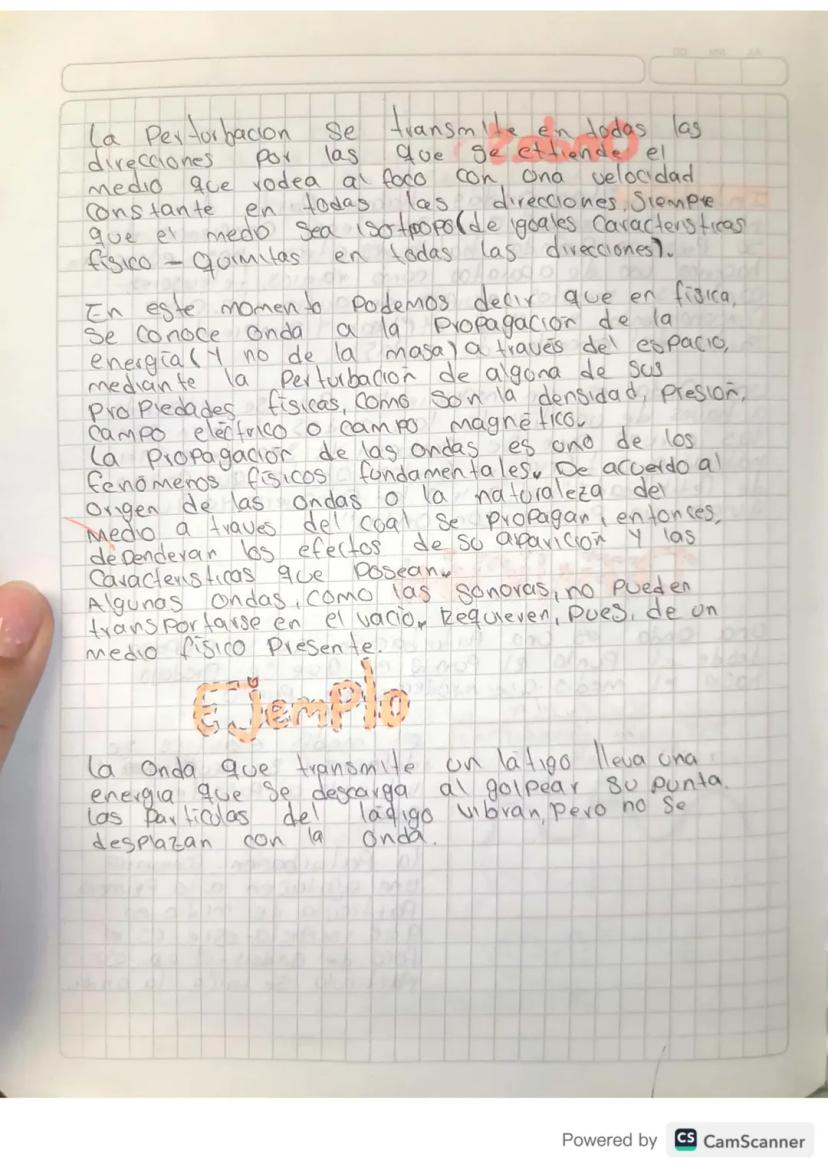 La Perturbación se transmite en todas las
direcciones por las que se ettiende el
medio que rodea al foco con una velocidad
constante en todas las direcciones, Siempre
que el medo sea isotropo(de iguales Caracteristicas
físico - Quimitas en todas las direcciones).
En este momento Podemos decir que en física,
Se conoce onda a la Propagación de la
energía(Y no de la masa) a través del espacio,
mediante la Perturbación de alguna de sus
Propiedades físicas, como son la densidad, Presión,
Campo eléctrico o campo magnético.
La propagación de las ondas es uno de los
fenómeros físicos fundamentales. De acuerdo al
Origen de las ondas o la naturaleza del
Medio a traves del cual se propagan, entonces,
dependeran los efectos de su aparición Y las
Caracteristicas que Posean.
Algunas ondas, como las sonoras, no pueden
transportarse en el vacio, requieren, pues, de un
medio físico Presente.
Ejemplo
La Onda que transmite un látigo lleva una
energia que se descarga al golpear su punta.
Las Particulas del ládigo vibran, pero no se
desplazan con la onda.
Powered by CS CamScanner